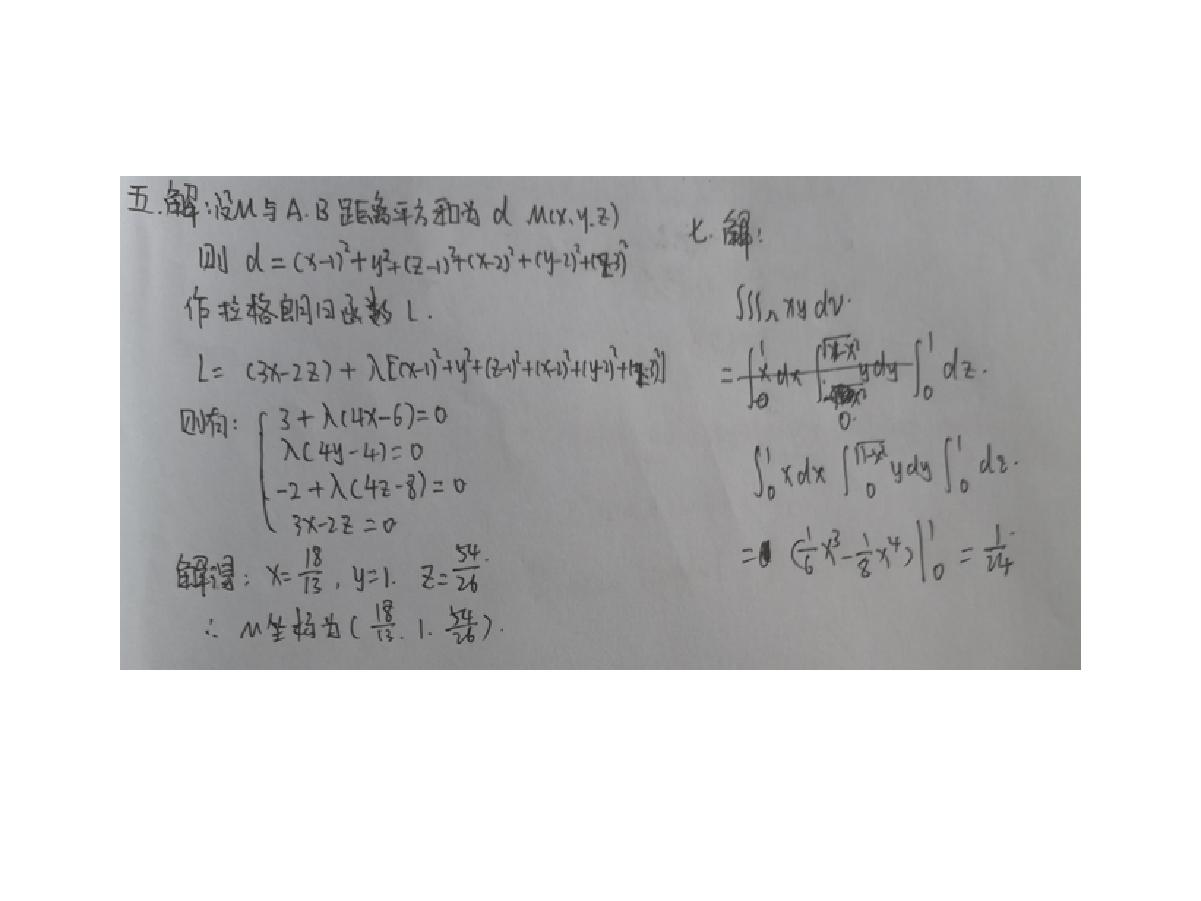 五.解:设M与A.B距离平方和为d M(x,y,z)
则 d=(x-1)²+y²+(z-1)²+(x-2)²+(y-2)²+(z-3)²
作拉格朗日函数L.
L= (3x-2z)+λ[(x-1)²+y²+(z-1)²+(x-2)²+(y-2)²+(z-3)²]
则有: { 3+λ(4x-6)=0
λ(4y-4)=0
-2+λ(4z-8)=0
3x-2z=0
解得: x=18/13, y=1. z=54/26.
∴ M坐标为(18/13. 1. 54/26).
七.解:
∫∫∫ xydv.
= ∫₀¹ dz.
∫₀¹xdx∫₀^√(1-x²) ydy∫₀¹ dz.
= (1/6 x³ - 1/8 x⁴)|₀¹ = 1/24.